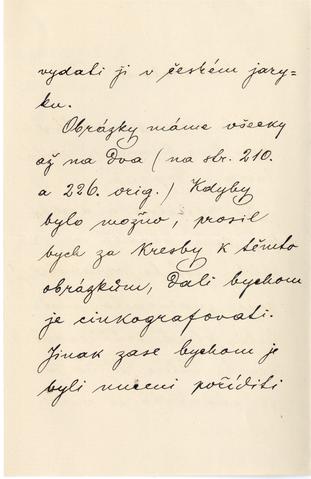 vydati ji v českém jazy=
ku.
Obrázky máme všecky
až na Dva (na str. 210.
a 226. orig.) Kdyby
bylo možno, prosil
bych za Kresby k těmto
obrázkům, Dali bychom
je cinkografovati.
Jinak zase bychom je
byli nuceni poříditi